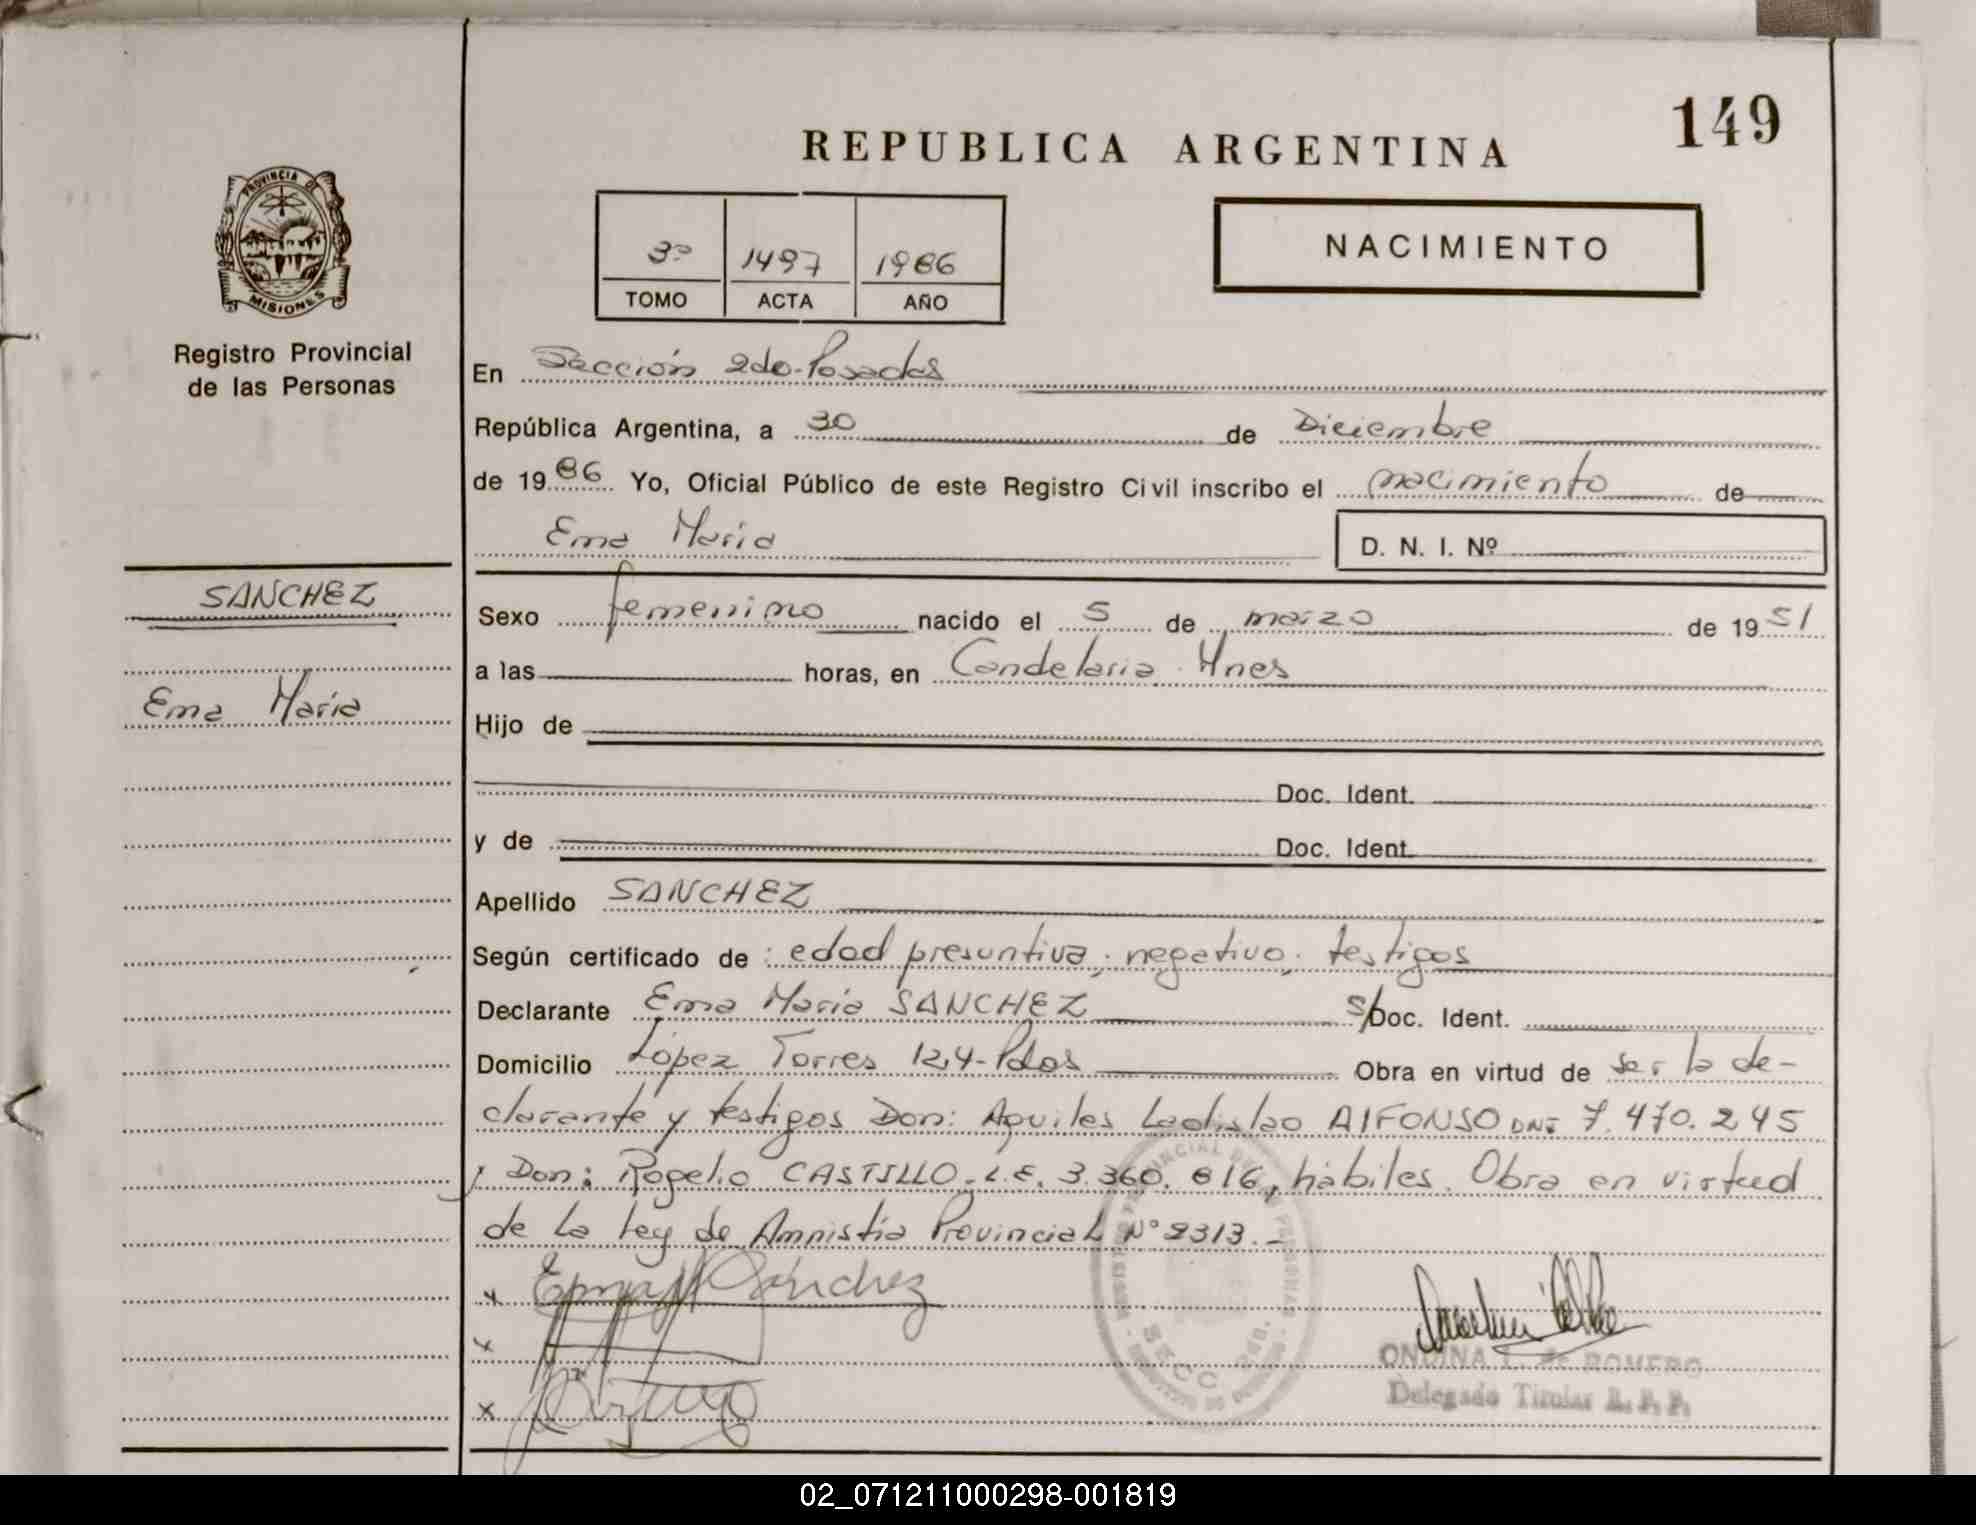 149
REPUBLICA ARGENTINA
PROVINCIA DE
MISIONES
Registro Provincial
de las Personas
3º 1497 1986
TOMO ACTA AÑO
NACIMIENTO
En Sección 2da-Posadas
República Argentina, a 30 de Diciembre
de 1986 Yo, Oficial Público de este Registro Civil inscribo el nacimiento de
Ema María D. N. I. Nº
SANCHEZ
Ema María
Sexo femenino nacido el 5 de marzo de 1951
a las horas, en Candelaria Mnes
Hijo de
Doc. Ident.
y de Doc. Ident.
Apellido SANCHEZ
Según certificado de : edad presuntiva; negativo; testigos
Declarante Ema María SANCHEZ S/Doc. Ident.
Domicilio López Torres 124-Pdas Obra en virtud de ser la de-
clarante y testigos Don: Aquiles Ladislao ALFONSO DNI 7.470.245
y Don: Rogelio CASTILLO. L.E. 3.360.816, hábiles. Obra en virtud
de la Ley de Amnistía Provincial Nº 2313.-
x Ema M Sánchez
x
x
SECC. 2da.
ONDINA de ROMERO
Delegado Titular R. P. P.
02_071211000298-001819